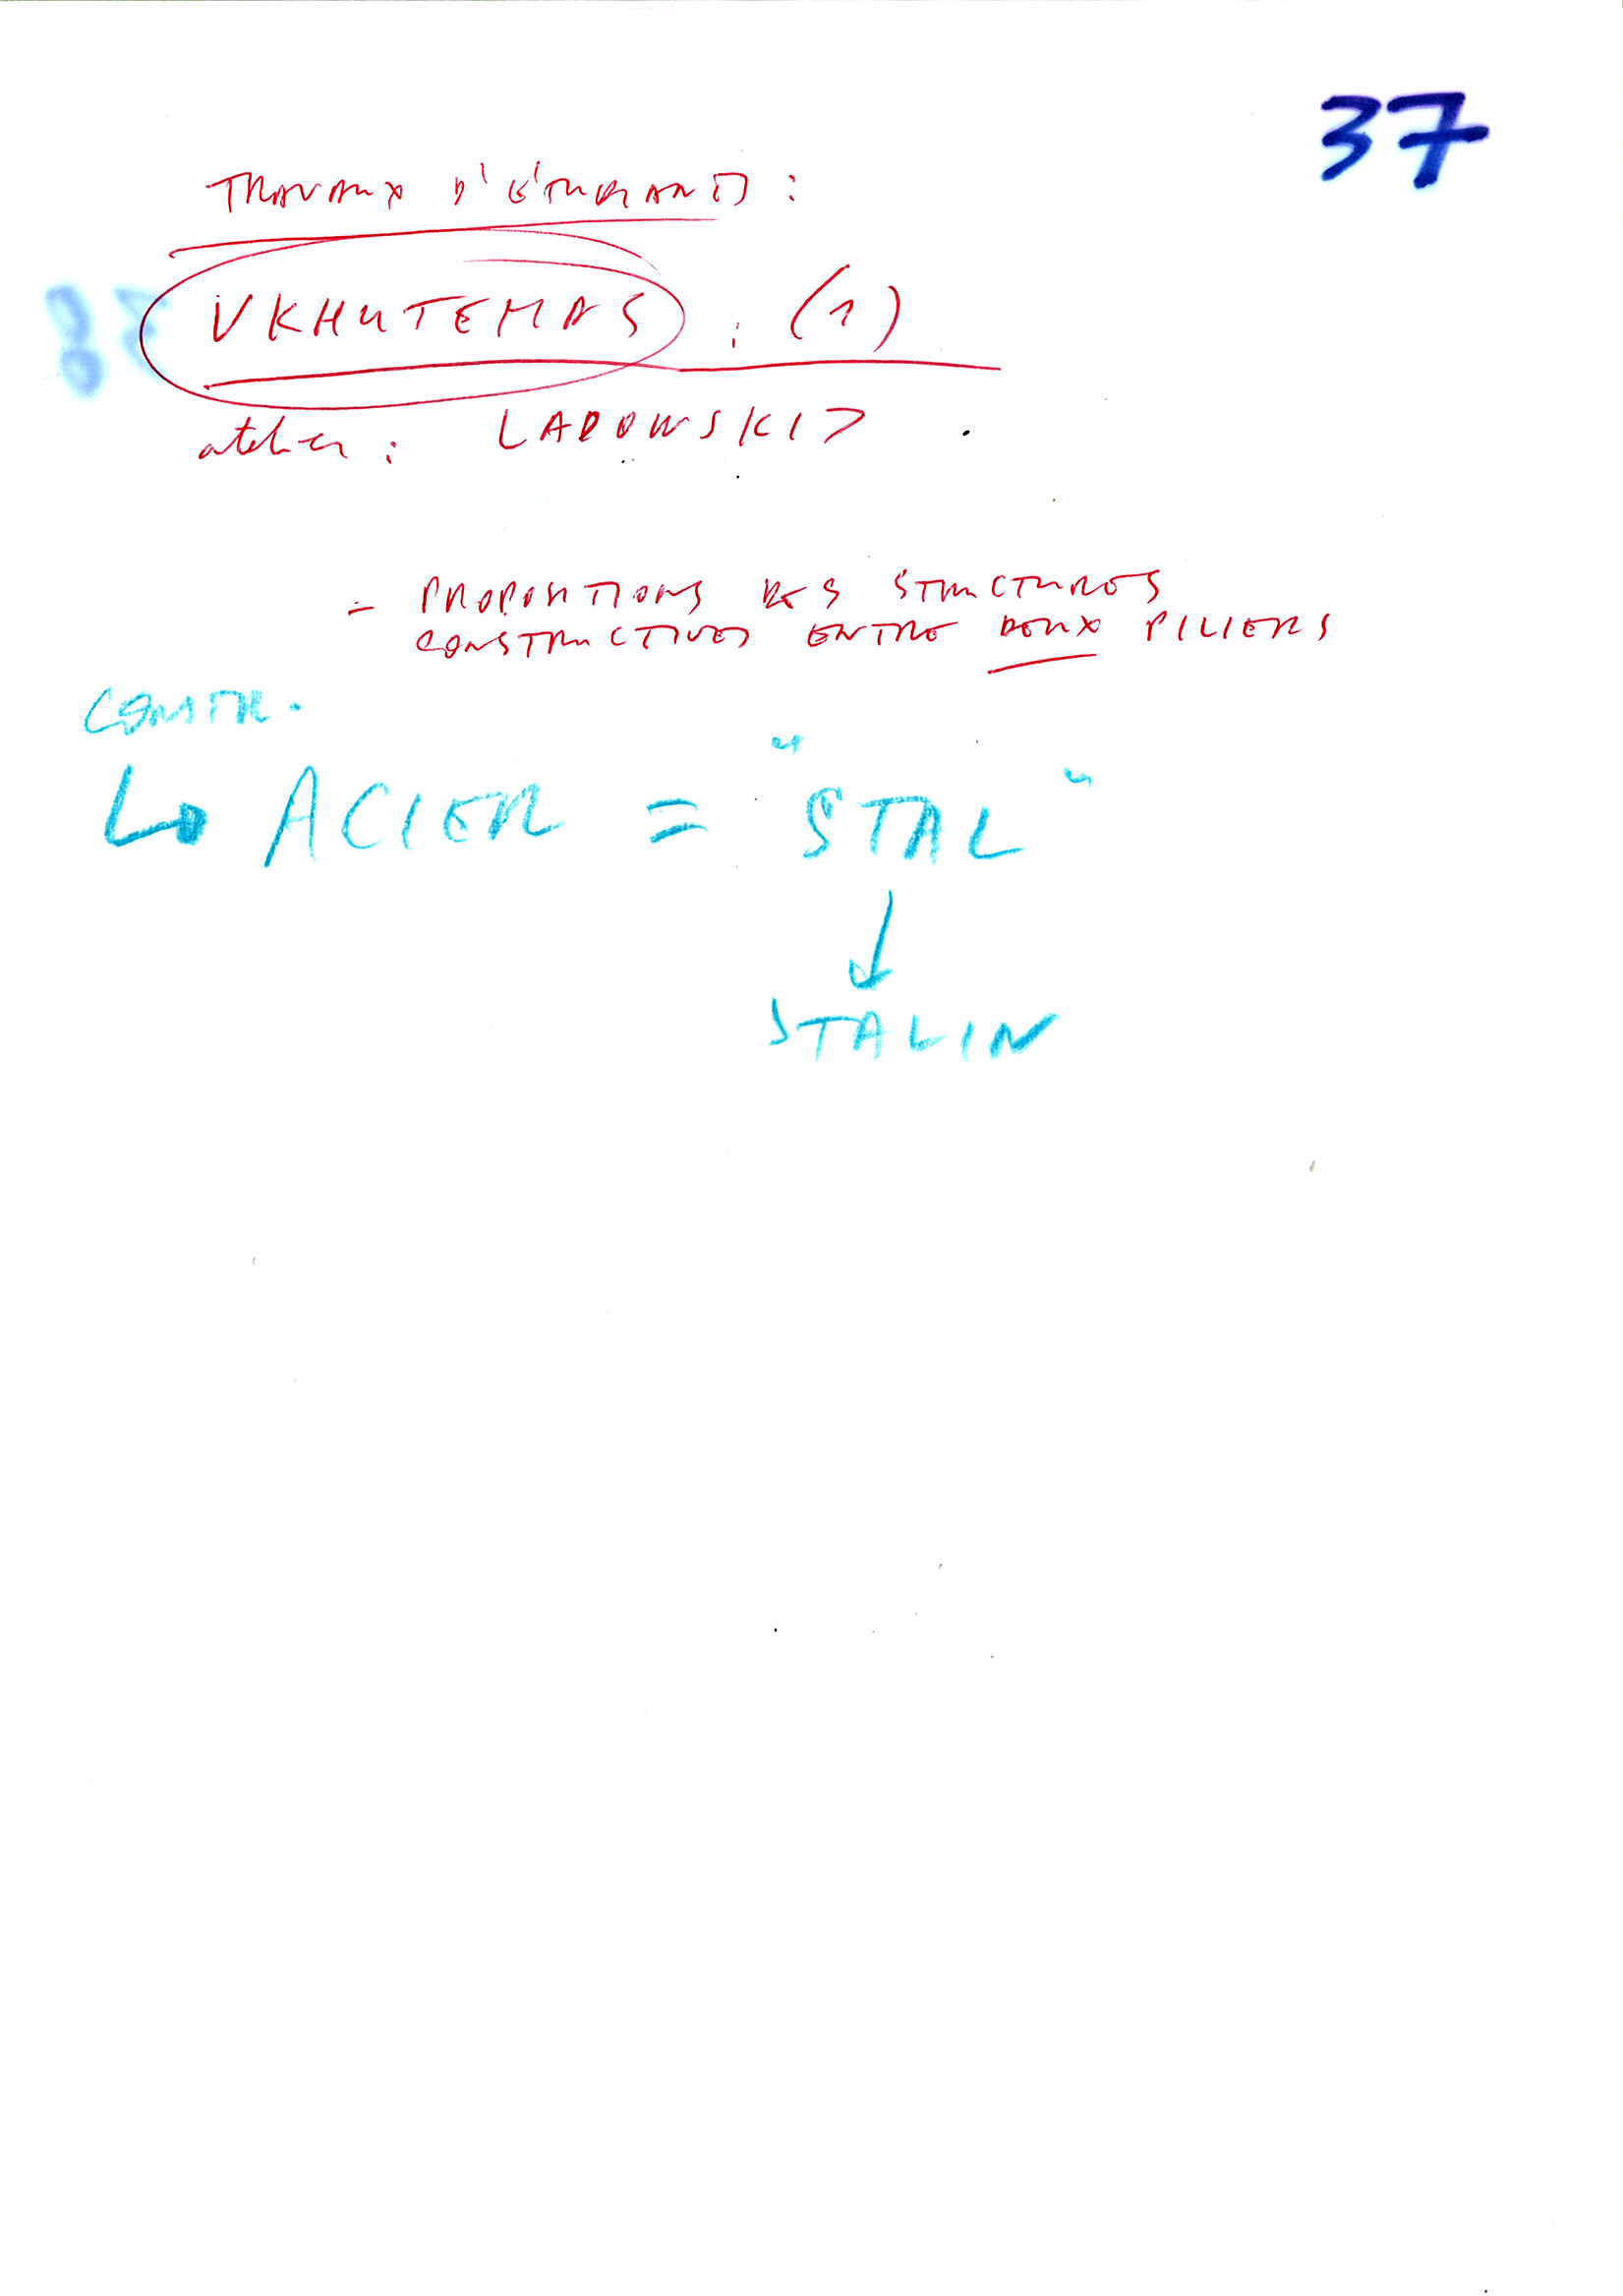 37
TRAVAUX D'ÉTUDIANTS :
VKHUTEMAS : (1)
atelier : LADOWSKIJ .
- PROPOSITIONS DES STRUCTURES
CONSTRUCTIVES ENTRE DEUX PILIERS
CONSTR.
↳ ACIER = "STAL"
↓
STALIN